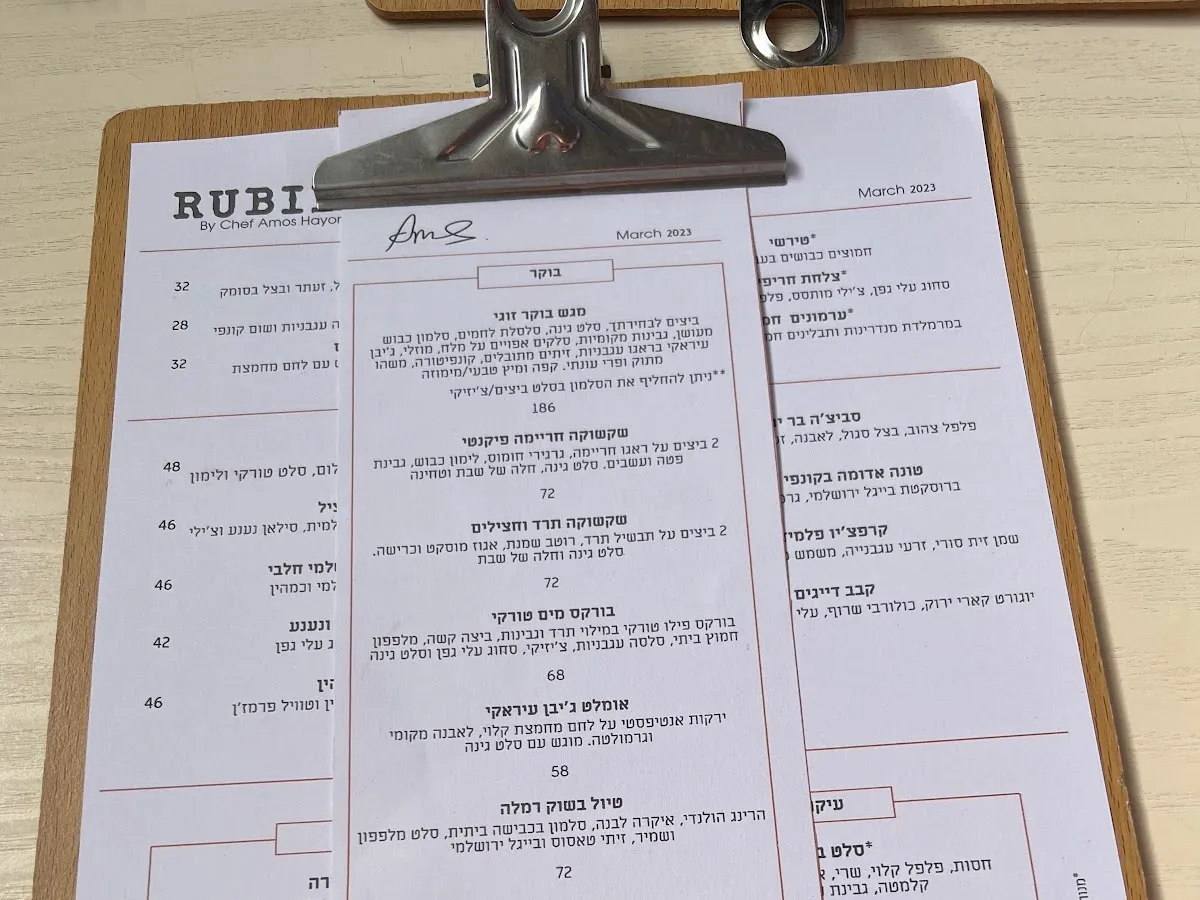 RUBI
By Chef Amos Hayon
March 2023
March 2023
בוקר
מגש בוקר זוגי
ביצים לבחירתך, סלט גינה, סלסלת לחמים, סלמון כבוש
מעושן, גבינות מקומיות, סלקים אפויים על מלח, מוזלי, ג'יבן
עיראקי בראגו עגבניות, זיתים מתובלים, קונפיטורה, משהו
מתוק ופרי עונתי. קפה ומיץ טבעי/מימוזה
**ניתן להחליף את הסלמון בסלט ביצים/צ'יזיקי
186
שקשוקה חריימה פיקנטי
2 ביצים על ראגו חריימה, גרגירי חומוס, לימון כבוש, גבינת
פטה ועשבים. סלט גינה, חלה של שבת וטחינה
72
שקשוקה תרד וחצילים
2 ביצים על תבשיל תרד, רוטב שמנת, אגוז מוסקט וכרישה.
סלט גינה וחלה של שבת
72
בורקס מים טורקי
בורקס פילו טורקי במילוי תרד וגבינות, ביצה קשה, מלפפון
חמוץ ביתי, סלסה עגבניות, צ'יזיקי, סחוג עלי גפן וסלט גינה
68
אומלט ג'יבן עיראקי
ירקות אנטיפסטי על לחם מחמצת קלוי, לאבנה מקומי
וגרמולטה. מוגש עם סלט גינה
58
טיול בשוק רמלה
הרינג הולנדי, איקרה לבנה, סלמון בכבישה ביתית, סלט מלפפון
ושמיר, זיתי טאסוס ובייגל ירושלמי
72
*טירשי
חמוצים כבושים
*צלחת
סחוג עלי גפן, צ'ילי מותסס,
*ערמונים
במרמלדת מנדרינות ותבלינים
סביצ'ה בר
פלפל צהוב, בצל סגול, לאבנה,
טונה אדומה בקונפי
ברוסקטת בייגל ירושלמי,
קרפצ'יו
שמן זית סורי, זרעי עגבנייה, משמש
קבב דייגים
יוגורט קארי ירוק, כולורבי שרוף, עלי
*סלט
חסות, פלפל קלוי, שרי,
קלמטה, גבינת
זעתר ובצל בסומק
32
עגבניות ושום קונפי
28
עם לחם מחמצת
32
סלט טורקי ולימון
48
סילאן נענע וצ'ילי
46
חלבי
וכמהין
46
ונענע
עלי גפן
42
וטוויל פרמז'ן
46